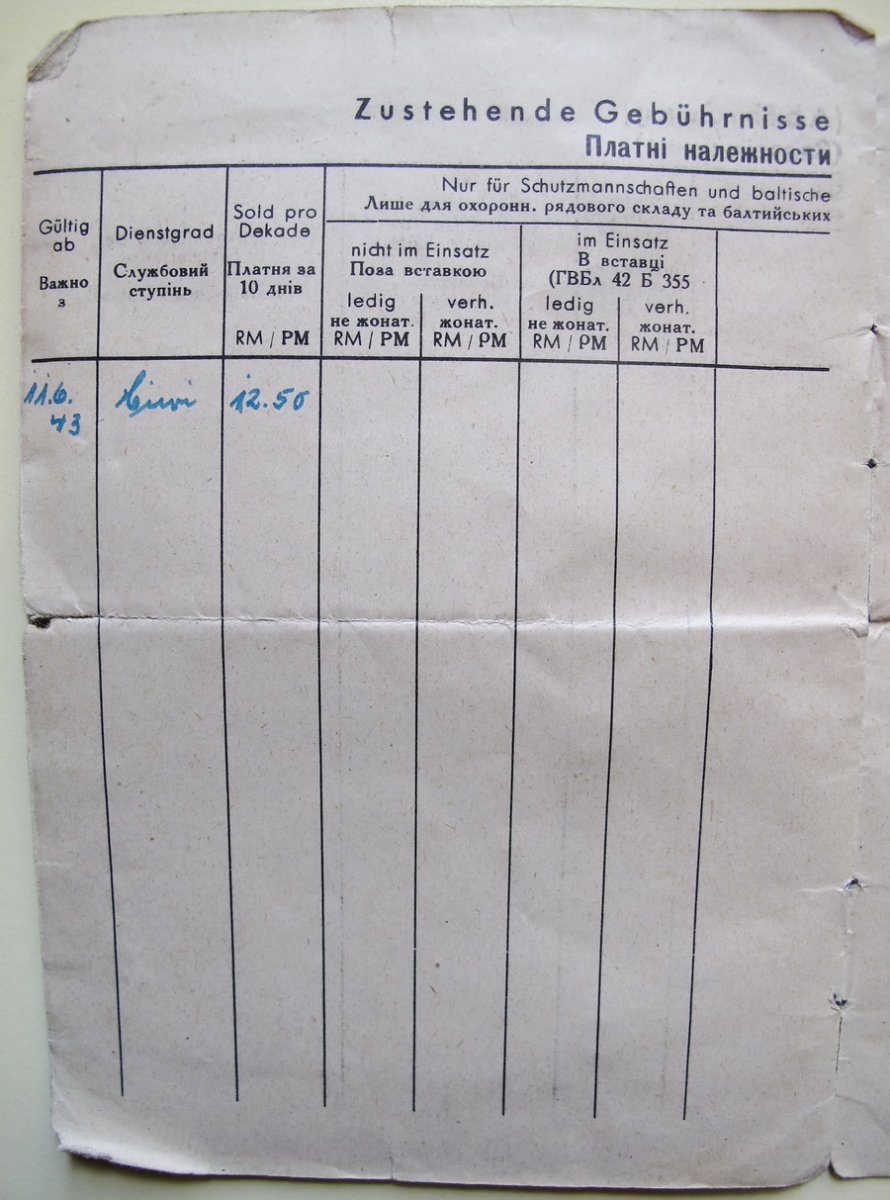 Zustehende Gebührnisse
Платні належности
Gültig
ab
Важно
з
Dienstgrad
Службовий
ступінь
Sold pro
Dekade
Платня за
10 днів
RM / РМ
Nur für Schutzmannschaften und baltische
Лише для охоронн. рядового складу та балтийських
nicht im Einsatz
Поза вставкою
ledig
не жонат.
RM / РМ
verh.
жонат.
RM / РМ
im Einsatz
В вставці
(ГВБл 42 Б 355
ledig
не жонат.
RM / РМ
verh.
жонат.
RM / РМ
11.6.
43
Hiwi
12.50